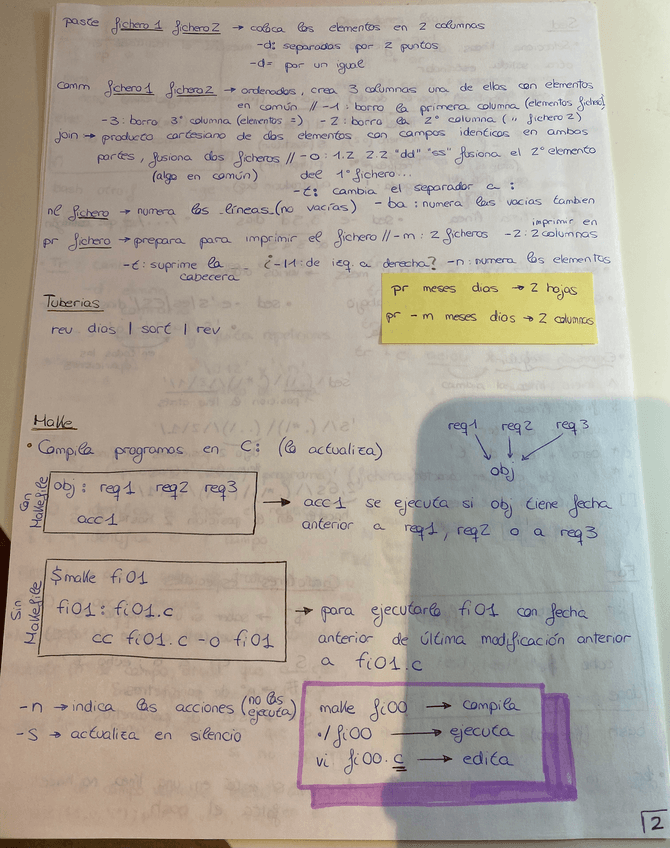 paste fichero 1 fichero 2 → coloca los elementos en 2 columnas
-d: separadas por 2 puntos
-d= por un igual
comm fichero 1 fichero 2 → ordenados, crea 3 columnas una de ellas con elementos
en común // -1: borro la primera columna (elementos fichero1)
-3: borro 3ª columna (elementos =) -2: borro la 2ª columna (" fichero 2)
join → producto cartesiano de dos elementos con campos identicos en ambos
partes, fusiona dos ficheros // -o: 1.2 2.2 "dd" "ss" fusiona el 2º elemento
(algo en común) del 1º fichero...
-t: cambia el separador a :
nl fichero → numera las líneas (no vacías) -ba: numera las vacías tambien
pr fichero → prepara para imprimir el fichero // -m: 2 ficheros -2: imprimir en 2 columnas
-t: suprime la cabecera ¿-l1: de izq. a derecha? -n: numera los elementos
pr meses dias → 2 hojas
pr -m meses dias → 2 columnas
Tuberias
rev dias | sort | rev
Make
• Compila programas en C: (lo actualiza)
req1 req2 req3
obj
Con Makefile
obj: req1 req2 req3
acc1
→ acc1 se ejecuta si obj tiene fecha
anterior a req1, req2 o a req3
Sin Makefile
$make fi01
fi01: fi01.c
cc fi01.c -o fi01
→ para ejecutarlo fi01 con fecha
anterior de última modificación anterior
a fi01.c
-n → indica las acciones (no las ejecuta)
-s → actualiza en silencio
make fi00 → compila
./fi00 → ejecuta
vi fi00.c → edita
2